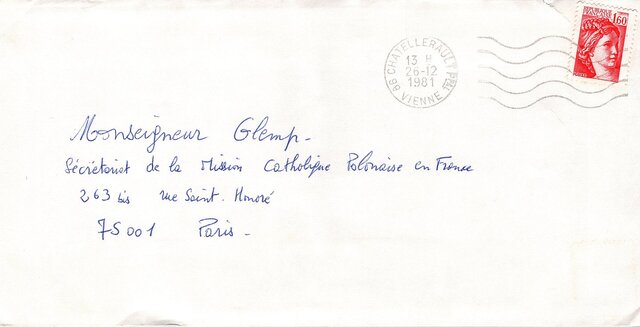 REPUBLIQUE FRANCAISE
1,60
86 CHATELLERAULT PPAL
13 H
26-12
1981
VIENNE
Monseigneur Glemp.
Sécrétariat de la Mission Catholique Polonaise en France
263 bis rue Saint. Honoré
75001 Paris.